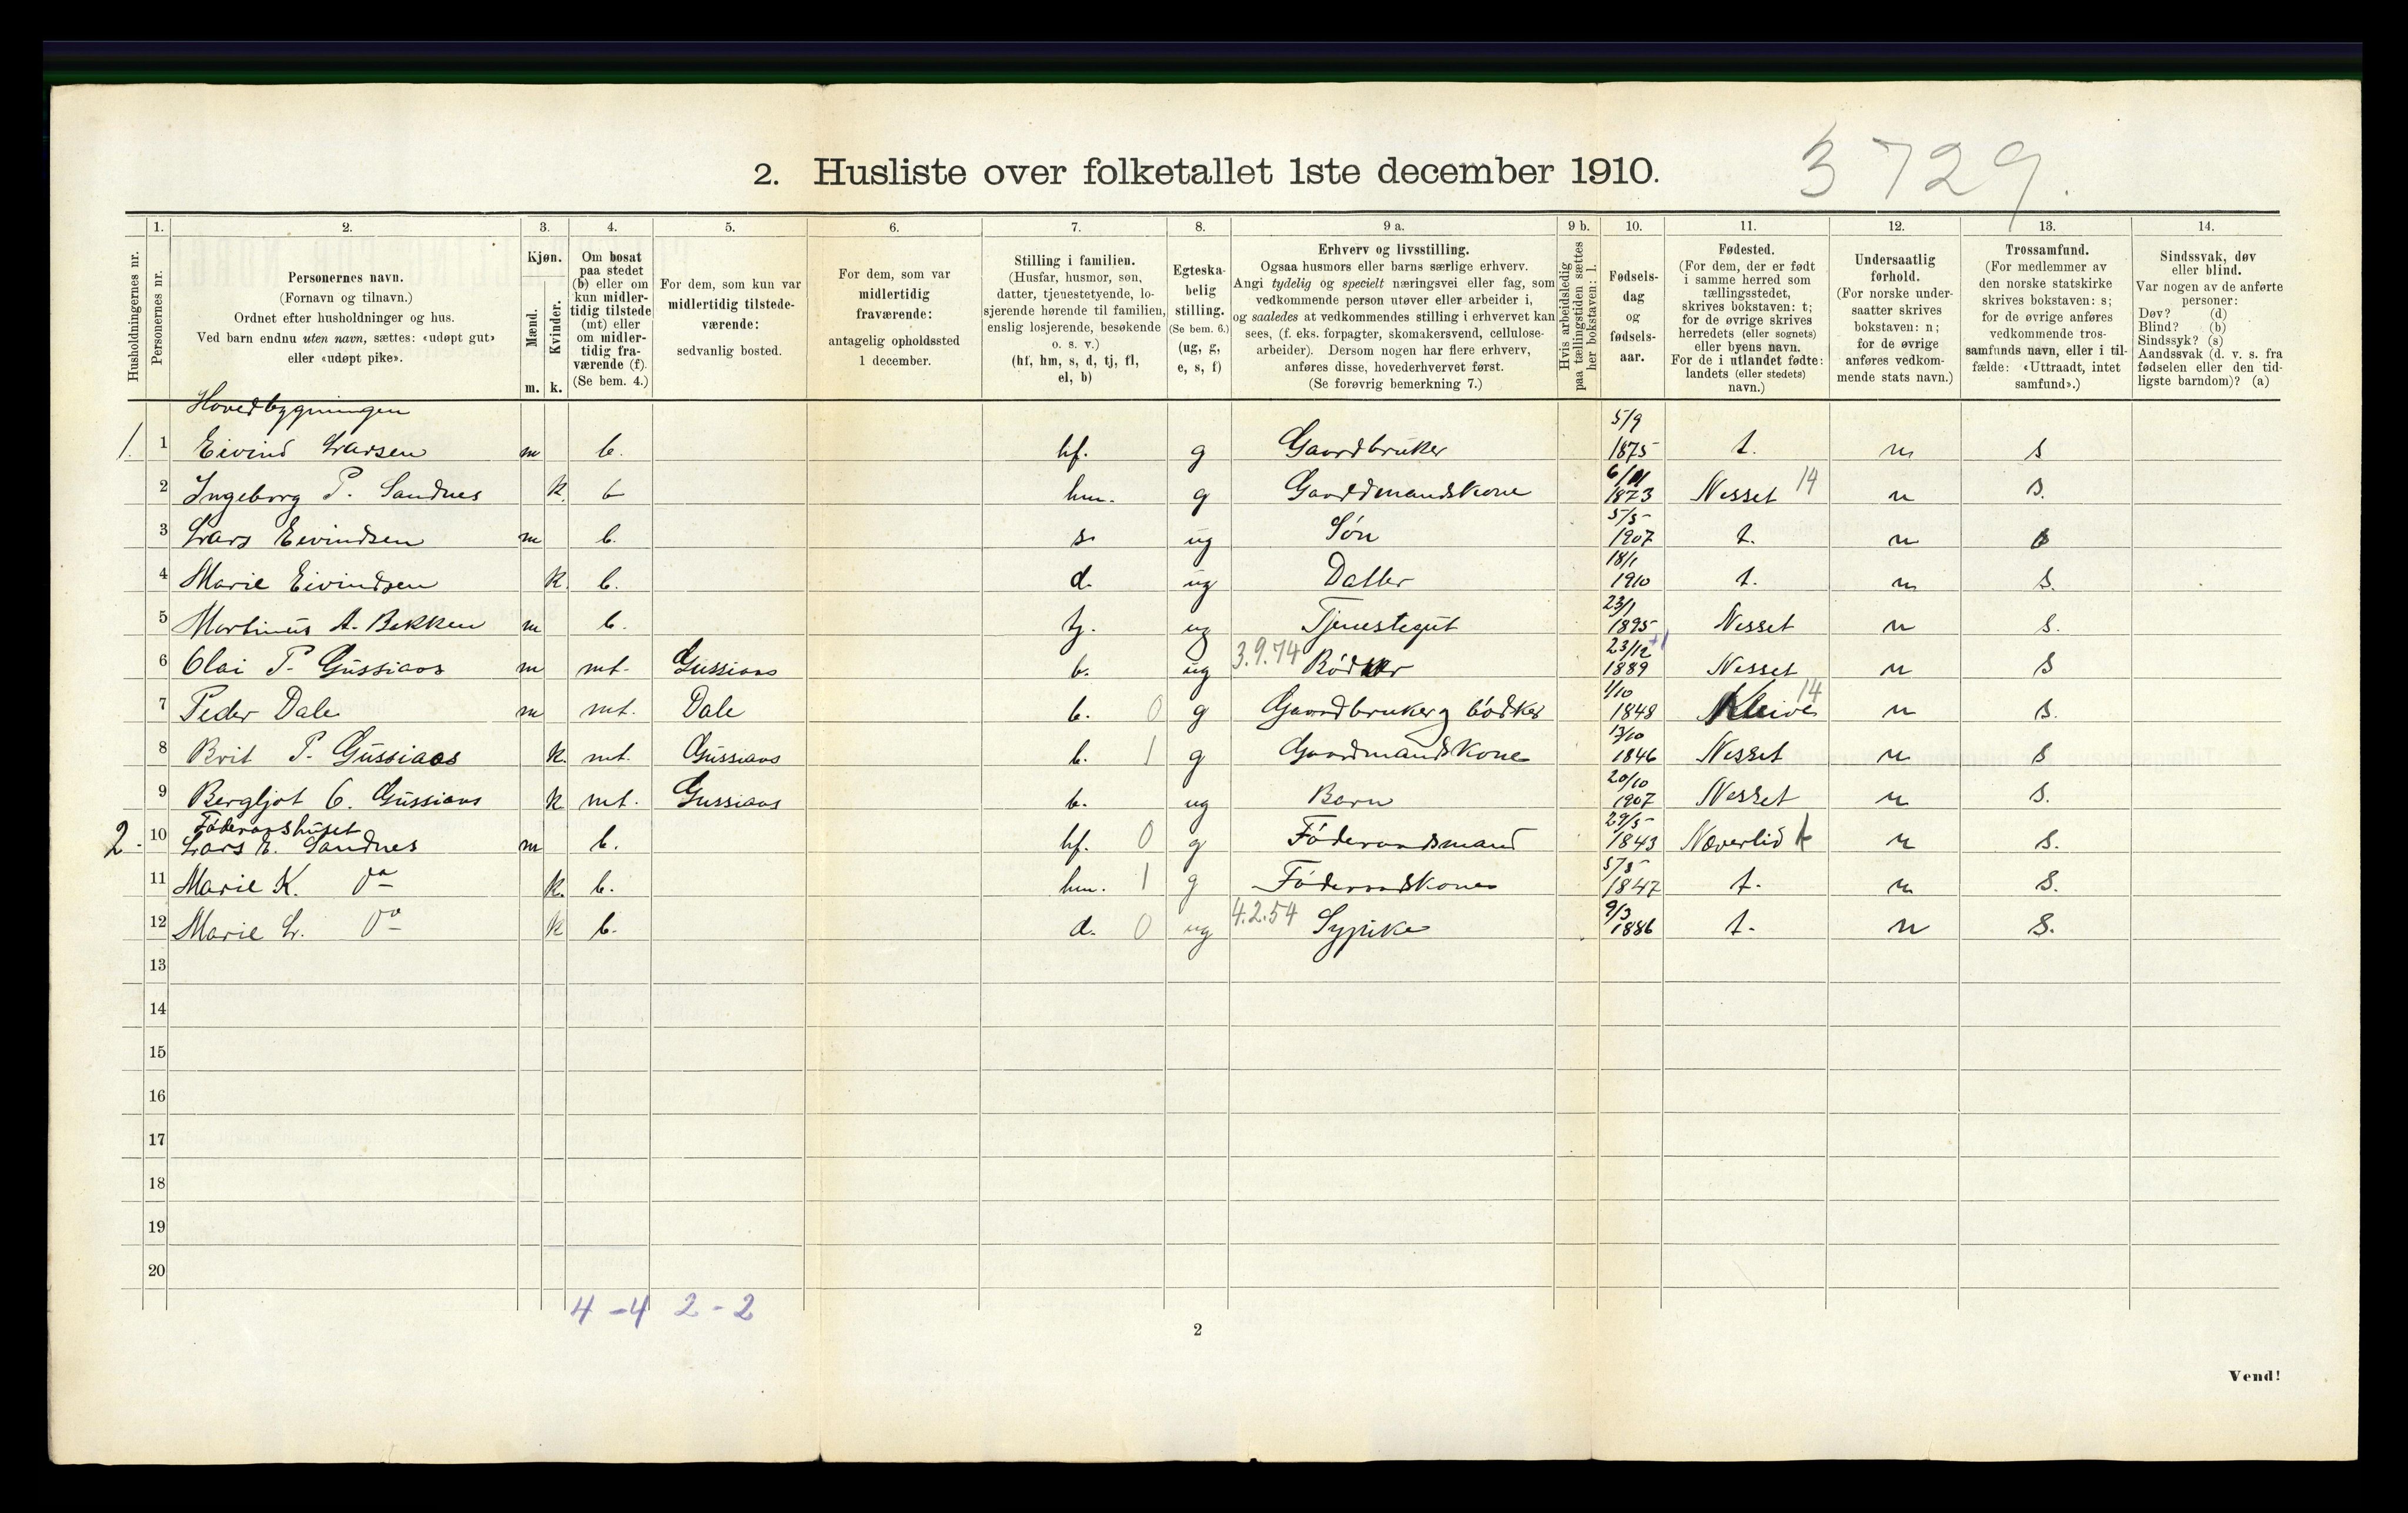 3 729.
2. Husliste over folketallet 1ste december 1910.
Husholdningernes nr.
1. Personernes nr.
2. Personernes navn. (Fornavn og tilnavn.) Ordnet efter husholdninger og hus. Ved barn endnu uten navn, sættes: «udøpt gut» eller «udøpt pike».
3. Kjøn. Mænd. m. Kvinder. k.
4. Om bosat paa stedet (b) eller om kun midlertidig tilstede (mt) eller om midlertidig fraværende (f). (Se bem. 4.)
5. For dem, som kun var midlertidig tilstedeværende: sedvanlig bosted.
6. For dem, som var midlertidig fraværende: antagelig opholdssted 1 december.
7. Stilling i familien. (Husfar, husmor, søn, datter, tjenestetyende, losjerende hørende til familien, enslig losjerende, besøkende o. s. v.) (hf, hm, s, d, tj, fl, el, b)
8. Egteskabelig stilling. (Se bem. 6.) (ug, g, e, s, f)
9 a. Erhverv og livsstilling. Ogsaa husmors eller barns særlige erhverv. Angi tydelig og specielt næringsvei eller fag, som vedkommende person utøver eller arbeider i, og saaledes at vedkommendes stilling i erhvervet kan sees, (f. eks. forpagter, skomakersvend, cellulosearbeider). Dersom nogen har flere erhverv, anføres disse, hovederhvervet først. (Se forøvrig bemerkning 7.)
9 b. Hvis arbeidsledig paa tællingstiden sættes her bokstaven: l.
10. Fødselsdag og fødselsaar.
11. Fødested. (For dem, der er født i samme herred som tællingsstedet, skrives bokstaven: t; for de øvrige skrives herredets (eller sognets) eller byens navn. For de i utlandet fødte: landets (eller stedets) navn.)
12. Undersaatlig forhold. (For norske undersaatter skrives bokstaven: n; for de øvrige anføres vedkommende stats navn.)
13. Trossamfund. (For medlemmer av den norske statskirke skrives bokstaven: s; for de øvrige anføres vedkommende trossamfunds navn, eller i tilfælde: «Uttraadt, intet samfund».)
14. Sindssvak, døv eller blind. Var nogen av de anførte personer: Døv? (d) Blind? (b) Sindssyk? (s) Aandssvak (d. v. s. fra fødselen eller den tidligste barndom)? (a)
Hovedbygningen
1. 1 Eivind Larsen m b. hf. g Gaardbruker 5/9 1875 t. n s
2 Ingeborg P. Sandnes k. b hm. g Gaardmandskone 6/11 1873 Nesset 14 n s.
3 Lars Eivindsen m b. s. ug Søn 5/5 1907 t. n s
4 Marie Eivindsen k. b. d. ug Datter 18/1 1910 t. n s.
5 Martinus A. Bekken m b. tj. ug Tjenestegut 23/1 1895 Nesset n s.
6 Olai P. Gussiaas m mt. Gussiaas b. ug 3.9.74 Bødker 23/12 1889 Nesset n s
7 Peder Dale m mt. Dale b. 0 g Gaardbruker og bødker 1/10 1848 Kleive 14 n s.
8 Brit P. Gussiaas k. mt. Gussiaas b. 1 g Gaardmandskone 13/10 1846 Nesset n s
9 Bergljot O. Gussiaas k mt. Gussiaas b. ug Barn 20/10 1907 Nesset n s.
Føderaadshuset
2. 10 Lars E. Sandnes m b. hf. 0 g Føderaadsmand 29/5 1843 Næverlid n s.
11 Marie K. Do k. b. hm. 1 g Føderaadskone 5/5 1847 t. n s.
12 Marie L. Do k b. d. 0 ug 4.2.54 Sypike 9/3 1886 t. n s.
13
14
15
16
17
18
19
20
4 - 4 2 - 2
2
Vend!